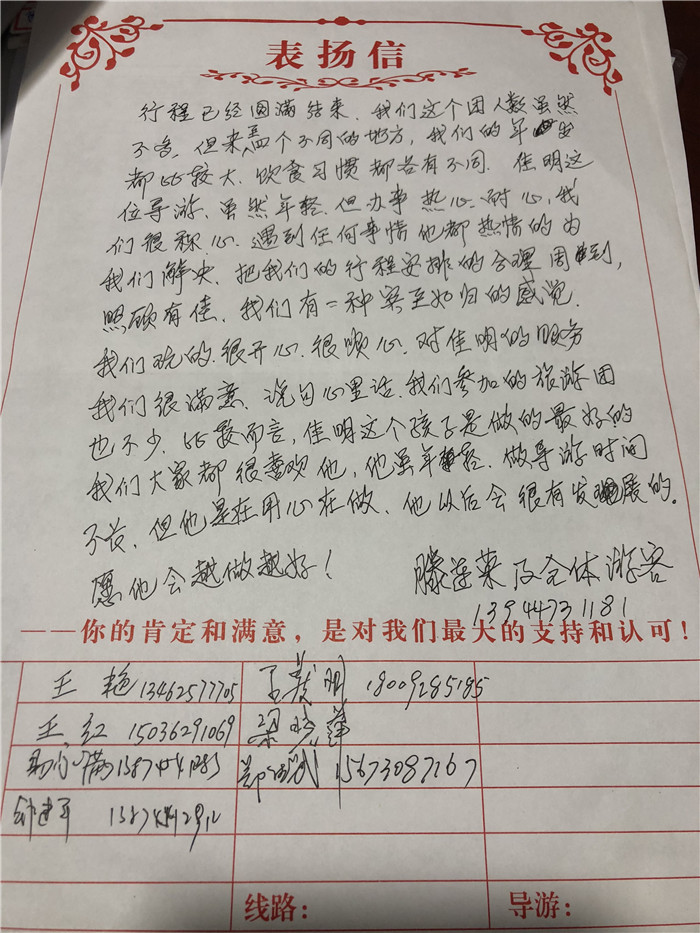 表扬信
行程已经圆满结束，我们这个团人数虽然
不多，但来自四个不同的地方，我们的年
都比较大、饮食习惯都各有不同．佳明这
位导游，虽然年轻．但办事热心、耐心，我
们很称心．遇到任何事情他都热情的为
我们解决．把我们的行程安排的合理周到，
照顾有佳．我们有一种宾至如归的感觉．
我们玩的很开心．很顺心．对佳明的服务
我们很满意．说句心里话．我们参加的旅游团
也不少．比较而言，佳明这个孩子是做的最好的
我们大家都很喜欢他，他虽年轻．做导游时间
不长，但他是在用心在做．他以后会很有发展的。
愿他会越做越好！
滕莲荣及全体游客
13944731181
——你的肯定和满意，是对我们最大的支持和认可！
王艳 13462577705 明 18009285185
王红 15036291069 梁晓萍
满 郑 15673087167
线路： 导游：